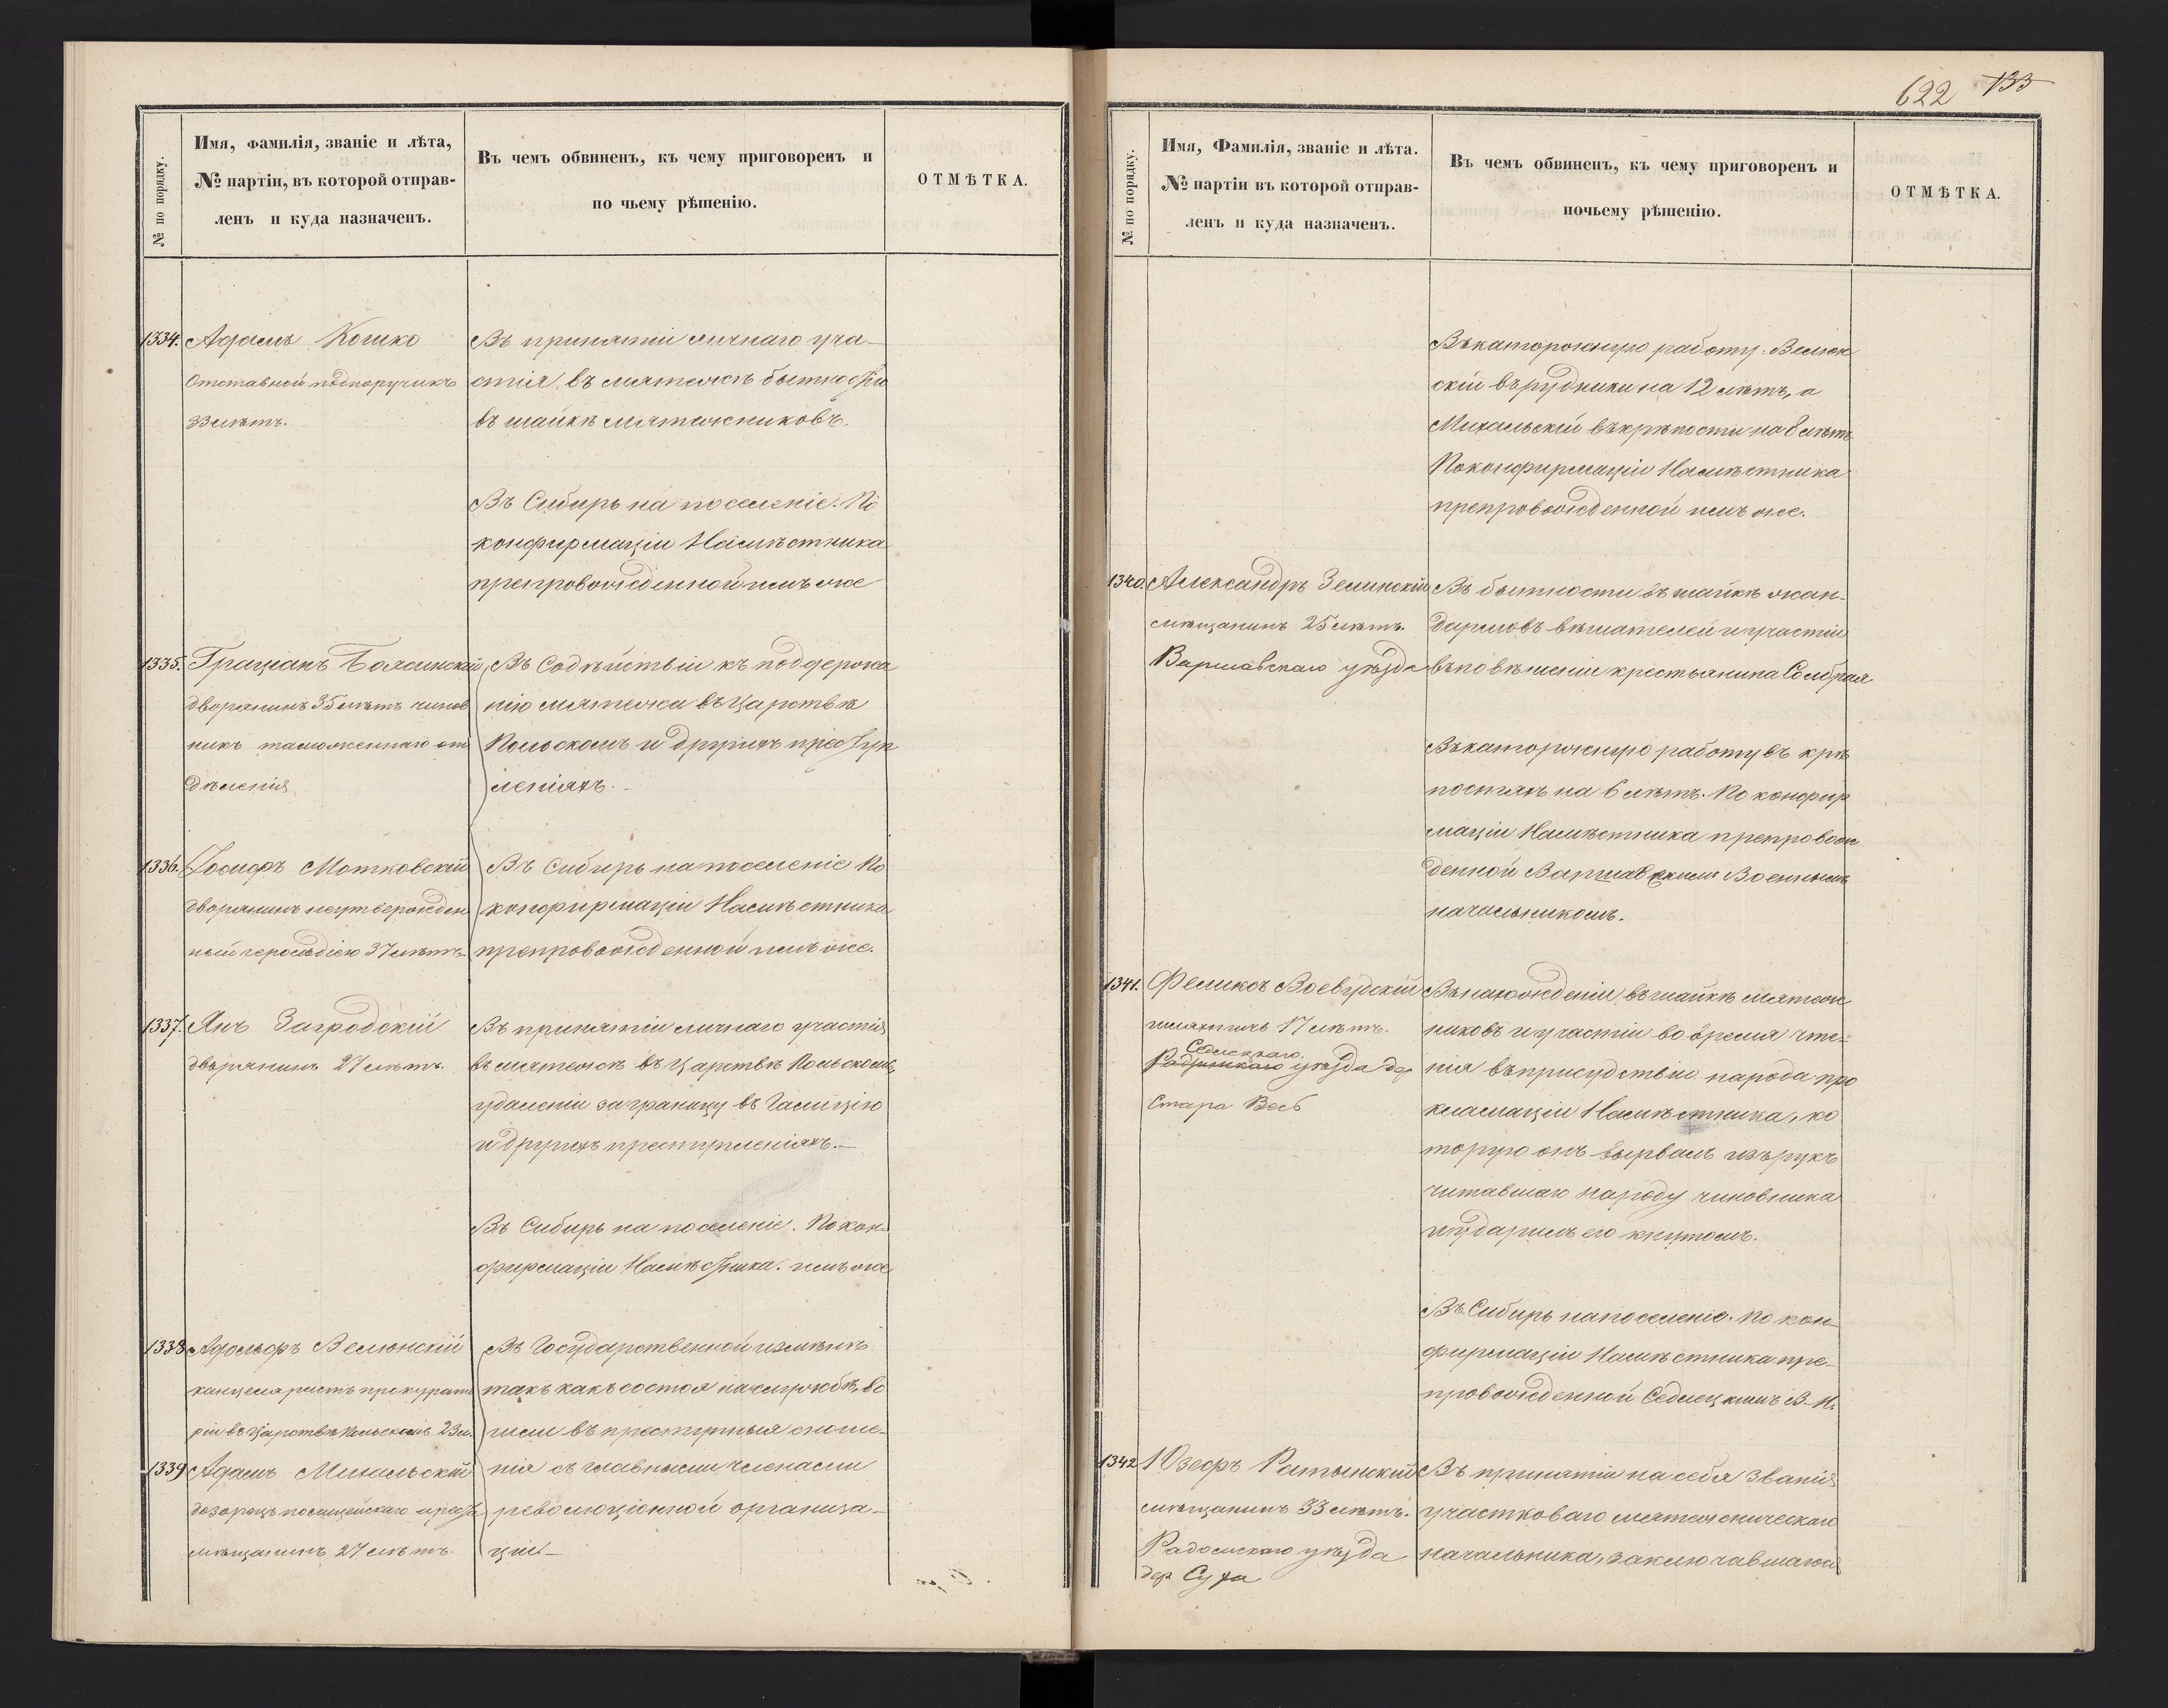 622 133
№ по порядку.
Имя, фамилія, званіе и лѣта,
№ партіи, въ которой отправ-
ленъ и куда назначенъ.
Въ чемъ обвиненъ, къ чему приговоренъ и
по чьему рѣшенію.
ОТМѢТКА.
1334. Адамъ Кошко
Отставной подпоручикъ
33 лѣтъ.
Въ принятіи личнаго уча-
стія въ мятежѣ бытности
въ шайкѣ мятежниковъ.
Въ Сибирь на поселеніе. По
конфирмаціи Намѣстника
препровожденной имъ же
1335. Граціанъ
дворянинъ 35 лѣтъ чинов
никъ таможеннаго от
дѣленія
Въ Содѣйствіи къ поддержа
нію мятежа въ Царствѣ
Польскомъ и другихъ преступ
леніяхъ.-
1336. Іосифъ Мотковскій
дворянинъ неутвержден
ный герольдіею 37 лѣтъ.
Въ Сибирь на поселеніе По
конфирмаціи Намѣстника
препровожденной имъ же.
1337. Янъ Загродскій
дворянинъ 27 лѣтъ.
Въ принятіи личнаго участія
въ мятежѣ въ Царствѣ Польскомъ,
удаленіи заграницу въ Галицію
и другихъ преступленіяхъ.-
Въ Сибирь на поселеніе. По кон-
фирмаціи Намѣстника. имъ же
1338 Адольфъ Велюнскій
канцеляристъ прокурато
ріи въ Царствѣ Польскомъ 23 л.
1339 Адамъ Михальскій
дозорецъ полицейскаго
мѣщанинъ 27 лѣтъ.
Въ Государственной измѣнѣ
такъ какъ состоя на службѣ, во
шли въ преступныя сноше-
нія съ главными членами
революціонной организа-
ціи-
№ по порядку.
Имя, Фамилія, званіе и лѣта.
№ партіи въ которой отправ-
ленъ и куда назначенъ.
Въ чемъ обвиненъ, къ чему приговоренъ и
почьему рѣшенію.
ОТМѢТКА.
Въ каторжную работу: Велюн
скій въ рудники на 12 лѣтъ, а
Михальскій въ крѣпости на 8 лѣтъ
По конфирмаціи Намѣстника
препровожденной имъ же.
1340. Александръ Зелинскій
мѣщанинъ 25 лѣтъ.
Варшавскаго уѣзда
Въ бытности въ шайкѣ жан-
дармовъ вѣшателей и участіи
въ повѣшеніи крестьянина
Въ каторжную работу въ крѣ
постяхъ на 6 лѣтъ. По конфир
маціи Намѣстника препровож
денной Варшавскимъ Военнымъ
начальникомъ.
1341. Феликсъ Воевудскій
шляхтичъ 17 лѣтъ.
Седлецкаго
Радинскаго уѣзда дер
Стара Весь
Въ нахожденіи въ шайкѣ мятеж
никовъ и участіи во время чте-
нія въ присудствіи народа про
кламаціи Намѣстника, ко
торую онъ вырвалъ изъ рукъ
читавшаго народу чиновника
и ударилъ его кнутомъ.
Въ Сибирь на поселеніе. По кон-
фирмаціи Намѣстника пре-
провожденной Седлецкимъ В. Н.
1342 Юзефъ Ратынскій
мѣщанинъ 33 лѣтъ.
Радомскаго уѣзда
дер Суха
Въ принятіи на себя званія
участковаго мятежническаго
начальника, заключавшагося